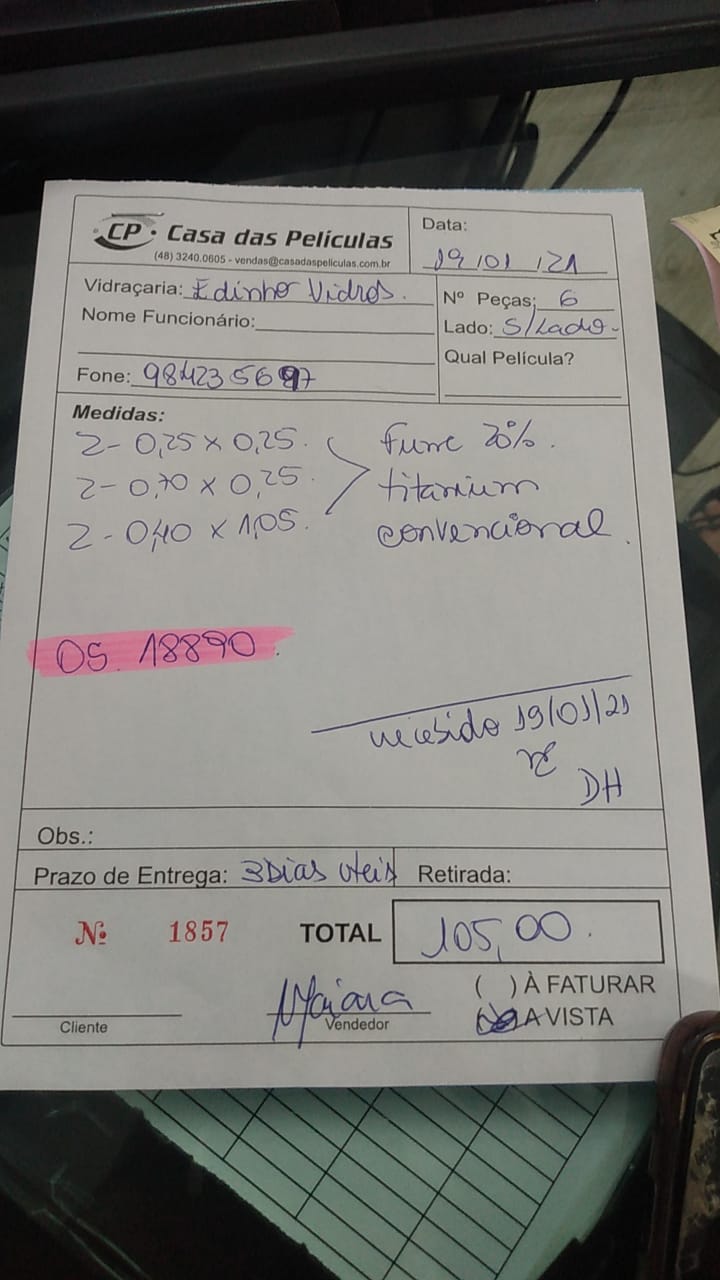 CP • Casa das Películas
(48) 3240.0605 - vendas@casadaspeliculas.com.br
Data:
19/01/21
Vidraçaria: Edinho Vidros.
Nome Funcionário:
Fone: 984235697
Nº Peças: 6
Lado: S/Lado-
Qual Película?
Medidas:
2- 0,25 x 0,25.
2- 0,70 x 0,25.
2- 0,40 x 1,05.
fume 20%.
titanium
convencional.
OS. 18890.
recebido 19/01/21
DH
Obs.:
Prazo de Entrega: 3 Dias uteis
Retirada:
Nº 1857
TOTAL 105,00.
( ) À FATURAR
A VISTA
Maiara
Cliente
Vendedor